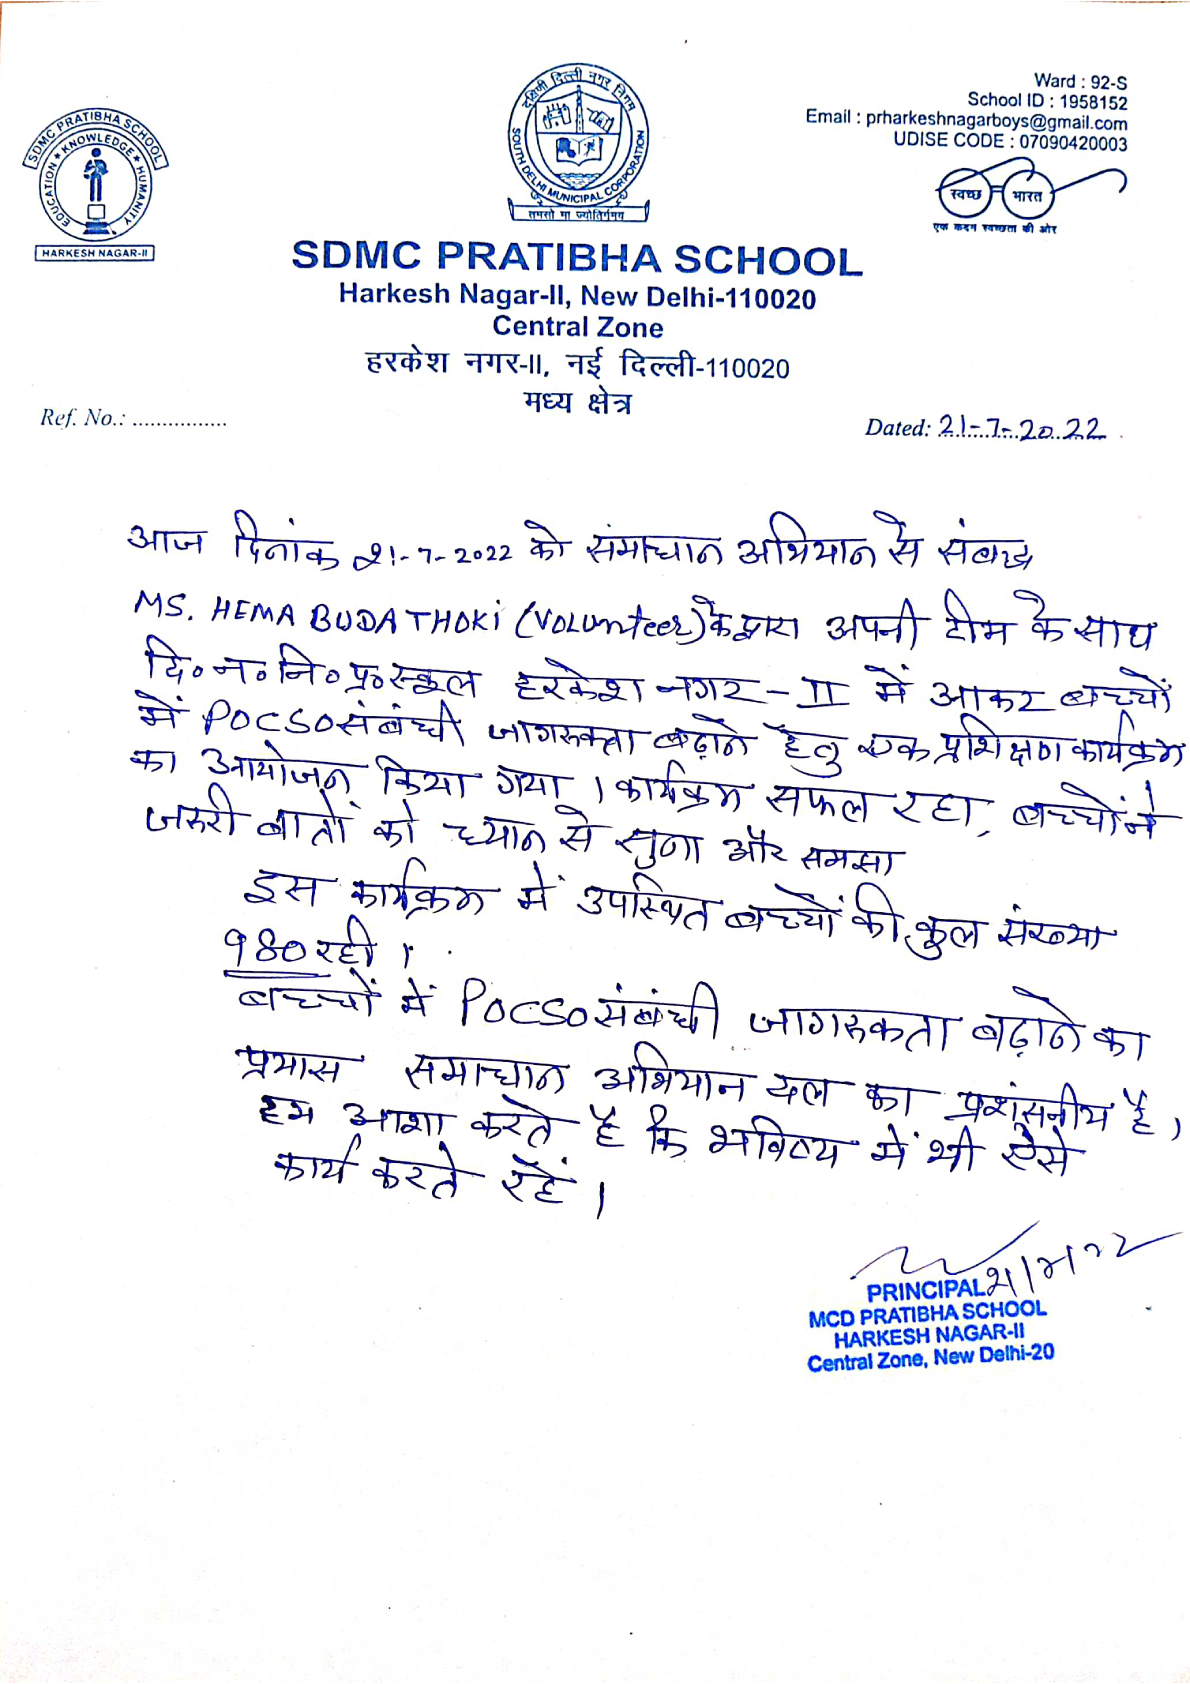 SDMC PRATIBHA SCHOOL
EDUCATION ★ KNOWLEDGE ★ HUMANITY
HARKESH NAGAR-II
दक्षिणी दिल्ली नगर निगम
SOUTH DELHI MUNICIPAL CORPORATION
तमसो मा ज्योतिर्गमय
Ward : 92-S
School ID : 1958152
Email : prharkeshnagarboys@gmail.com
UDISE CODE : 07090420003
स्वच्छ भारत
एक कदम स्वच्छता की ओर
SDMC PRATIBHA SCHOOL
Harkesh Nagar-II, New Delhi-110020
Central Zone
हरकेश नगर-II, नई दिल्ली-110020
मध्य क्षेत्र
Ref. No.: ................
Dated: 21-7-2022
आज दिनांक 21-7-2022 को समाधान अभियान से संबद्ध
MS. HEMA BUDATHOKI (Volunteer) के द्वारा अपनी टीम के साथ
दि॰न॰नि॰प्र॰स्कूल हरकेश नगर-II में आकर बच्चों
में POCSO संबंधी जागरूकता बढ़ाने हेतु एक प्रशिक्षण कार्यक्रम
का आयोजन किया गया । कार्यक्रम सफल रहा, बच्चों ने
जरुरी बातों को ध्यान से सुना और समझा
इस कार्यक्रम में उपस्थित बच्चों की कुल संख्या
980 रही ।
बच्चों में POCSO संबंधी जागरुकता बढ़ाने का
प्रयास समाधान अभियान दल का प्रशंसनीय है,
हम आशा करते है कि भविष्य में भी ऐसे
कार्य करते रहें ।
PRINCIPAL 21/7/22
MCD PRATIBHA SCHOOL
HARKESH NAGAR-II
Central Zone, New Delhi-20